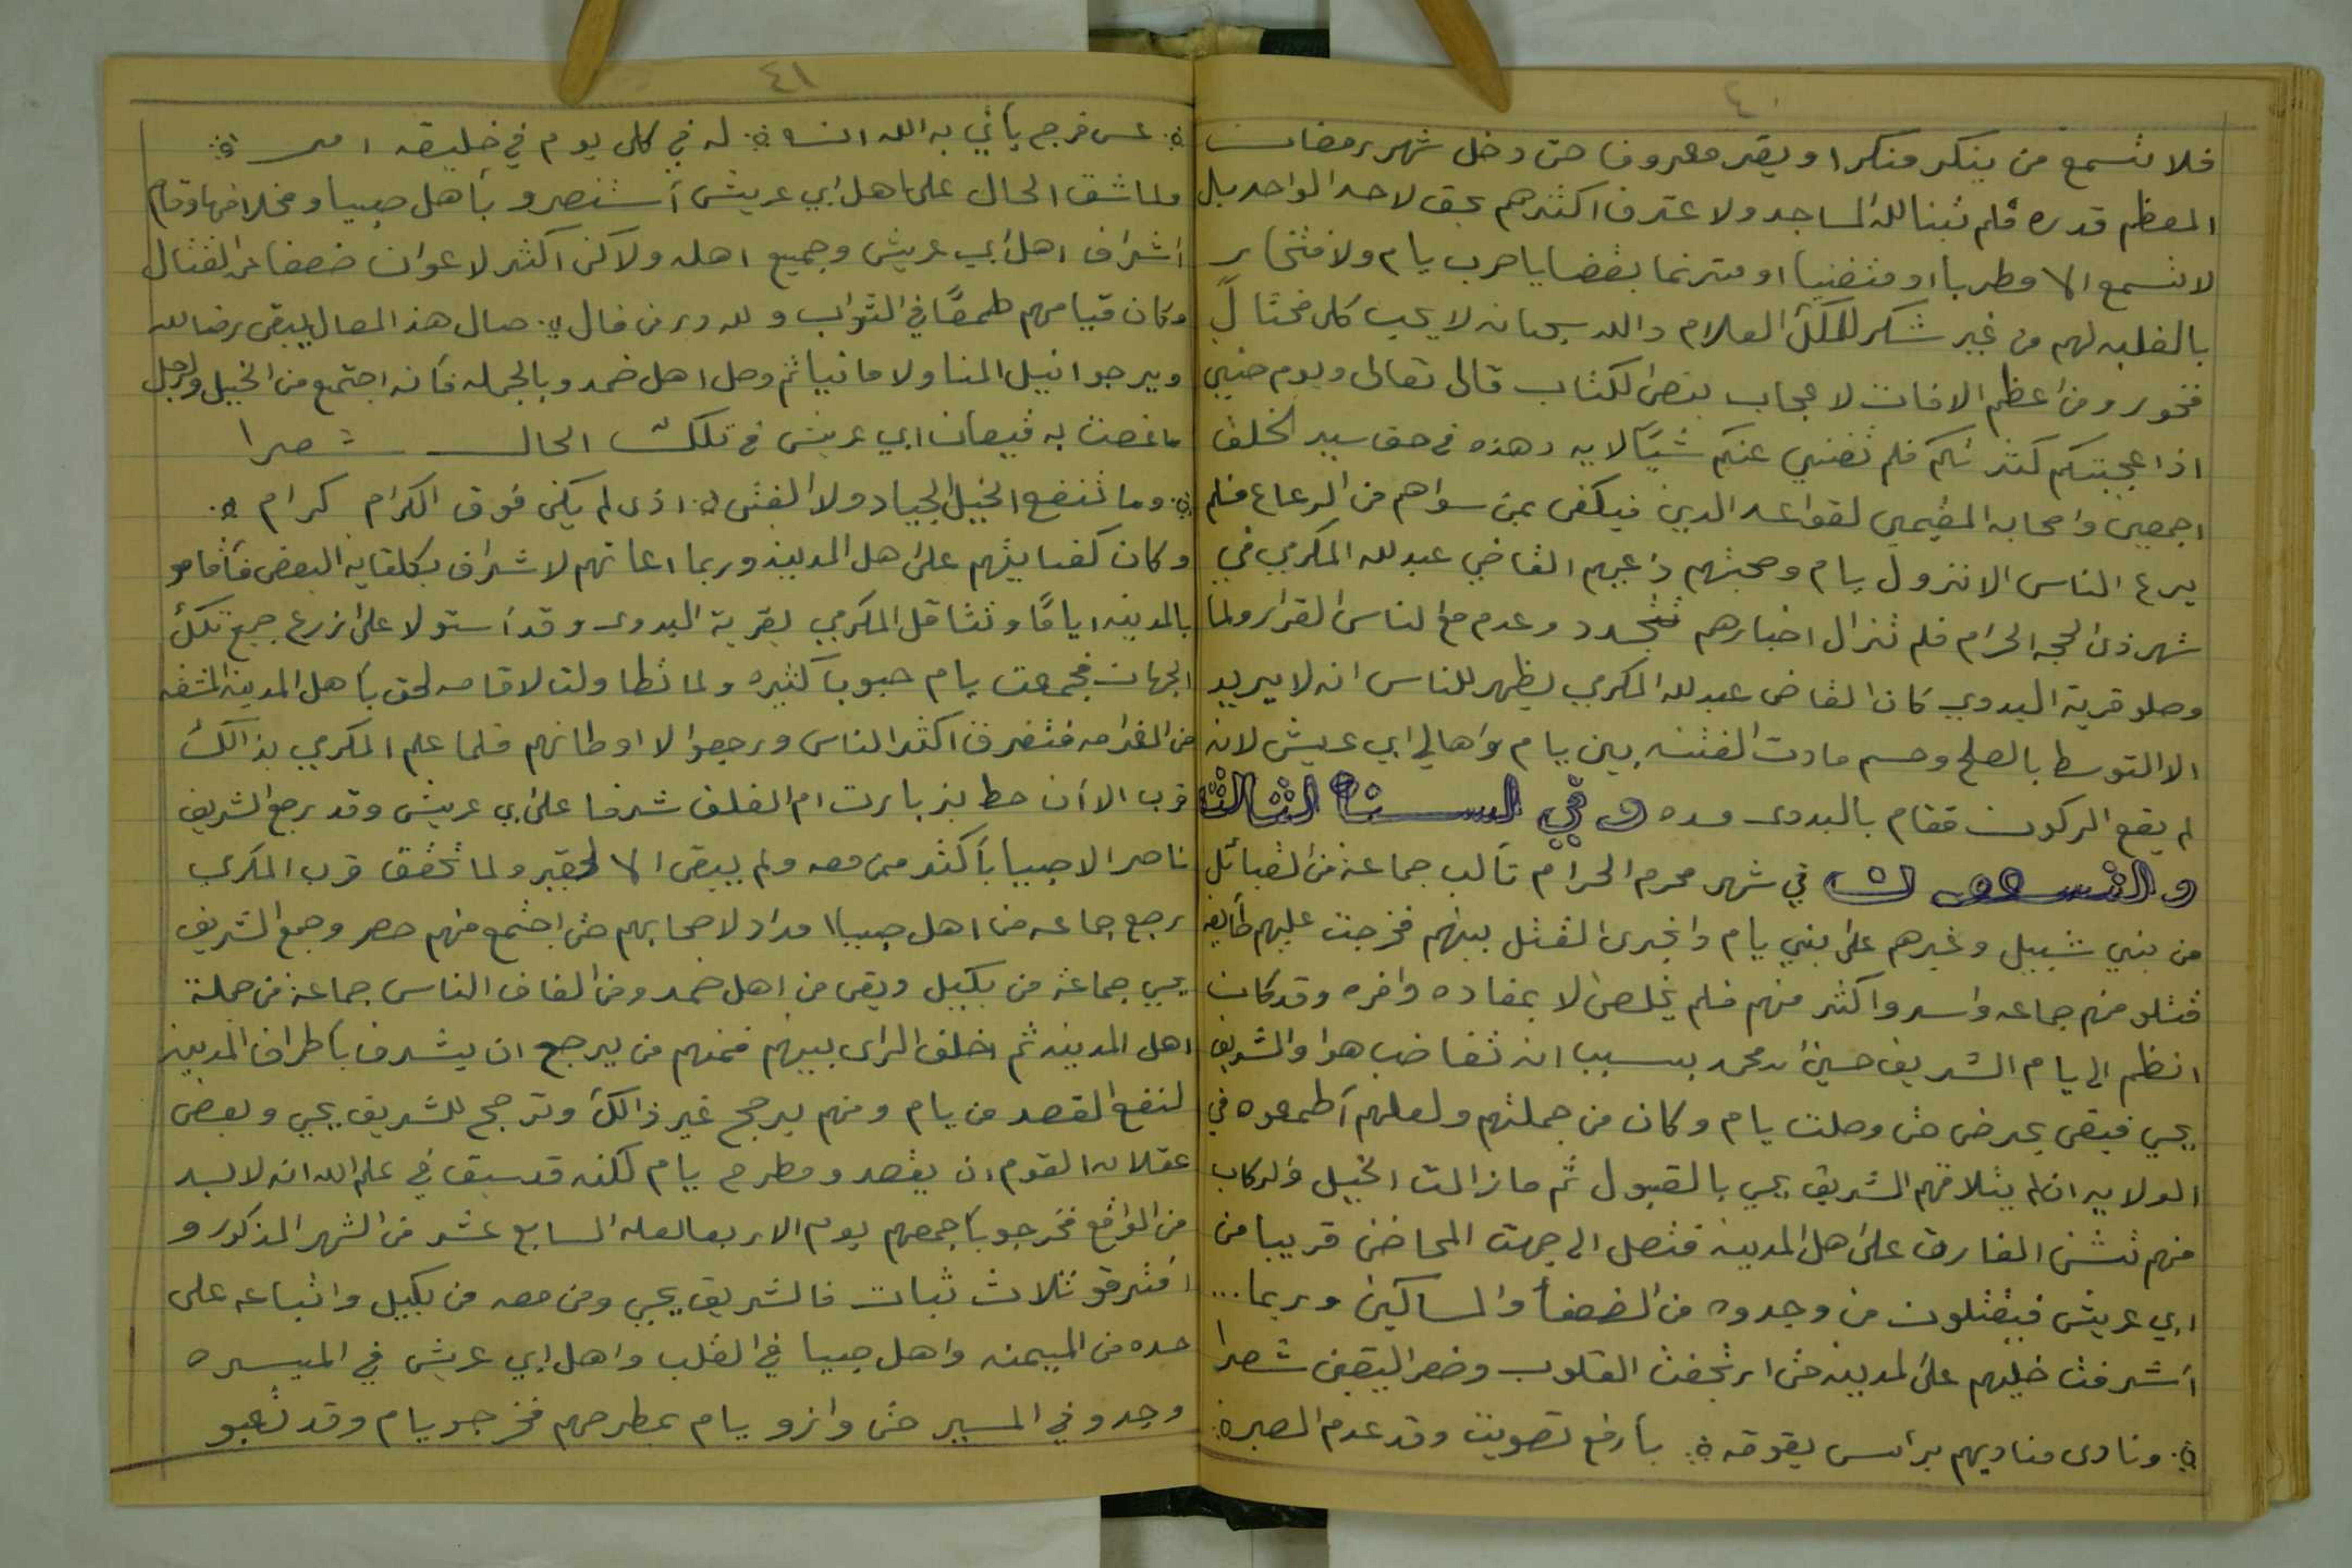 ٤٠
فلا تسمع من ينكر منكرا او يقر معروفا حتى دخل شهر رمضان
المعظم قدره فلم تبنا لله المساجد ولا عترف اكثرهم بحق لاحد الواحد بل
لا تسمع الا مطربا او متغنيا او مترنما بقضايا حرب يام ولافتخار
بالغلبه لهم من غير شكر للملك العلام والله سبحانه لا يحب كل مختال
فخور ومن اعظم الافات لا عجاب بنص الكتاب قال تعالى ويوم حنين
اذا عجبتكم كثرتكم فلم تغني عنكم شيئا لايه وهذه في حق سيد الخلق
اجمعين واصحابه المقيمين لقواعد الدين فيكفى بمن سواهم من الرعاع فلم
يرع الناس الا نزول يام وصحبتهم داعيهم القاضي عبدلله المكرمي في
شهر ذى الحجه الحرام فلم تزال اخبارهم تتجدد وعدم مع الناس القرار ولما
وصلو قرية البدوي كان القاضى عبدلله المكرمي يظهر للناس انه لا يريد
الا التوسط بالصلح وحسم مادت الفتنه بين يام واهالي ابي عريش لانه
لم يقع الركون فقام بالبدوى مده وفي السنة الثالثة
والتسعون في شهر محرم الحرام تألب جماعة من القبائل
من بني شبيل وغيرهم على بني يام وانجرى القتل بينهم فخرجت عليهم طايفه
قتلو منهم جماعه واسروا كثر منهم فلم يخلص الا بمفاده وافره وقد كان
انظم الى يام الشريف حسين بن محمد بسبب انه تغاضب هو والشريف
يحي فبقى بحرض حتى وصلت يام وكان من جملتهم ولعلهم أطمعوه في
الولايه ان لم يتلاقهم الشريف يحي بالقبول ثم مازالت الخيل والركاب
منهم تشن الغارات على اهل المدينه فتصل الى جهت المحاضن قريبا من
ابي عريش فيقتلون من وجدوه من الضعفأ والمساكين وربما...
أشرفت خيلهم على المدينه حتى ارتجفت القلوب وضعر اليقين شعرا
ونادى مناديهم برأس يقوقه بأرفع تصويت وقد عدم الصبر
٤١
عسى فرج يأتي به الله انه له في كل يوم في خليقه امر
ولما شق الحال على اهل ابي عريش أستنصرو بأهل صبيا ومخلافها وقام
اشراف اهل ابي عريش وجميع اهله ولاكن اكثر لاعوان ضعفا عن القتال
وكان قيامهم طمعًا في الثواب ولله در من قال صال هذ المصال يبقى رضا لله
ويرجوا نيل المنا ولا مانيا ثم وصل اهل ضمد وبالجمله فأنه اجتمع من الخيل والرجل
ما غصت به قيعان ابي عريش في تلك الحال شعرا
وما تنفع الخيل الجياد ولا الفتى اذى لم يكن فوق الكرام كرام
وكان كفايتهم على اهل المدينه وربما اعانهم لاشراف بكلفاية البعض فأقامو
بالمدينه ايامًا وتثاقل المكرمي بقرية البدوى وقد أستولا على زرع جميع تلك
الجهات فجمعت يام حبوبآ كثيره ولما تطاولت لاقامه لحق بأهل المدينه المشقه
من الغرامه فتفرق اكثر الناس ورجعوا لا اوطانهم فلما علم المكرمي بذالك
قرب الاأن حط بزبارت ام الغلف شرفا على ابي عريش وقد رجع الشريف
ناصر الا صبيا بأكثر من معه ولم يبقى الا لحقير ولما تحقق قرب المكرمي
رجع جماعه من اهل صبيا امداد لاصحابهم حتى اجتمع منهم حصر وجمع الشريف
يحي جماعة من بكيل وبقى من اهل ضمد ومن الفاف الناس جماعة من جملة
اهل المدينه ثم اخلف الراى بينهم فمنهم من يرجح ان يشرف بأطراف المدينه
لنفع القصد من يام ومنهم يرجح غير ذالك وترجح للشريف يحي وبعض
عقلاء القوم ان يقصد ومطرح يام لكنه قد سبق في علم الله انه لابد
من الواقع فخرجو بأجمعهم يوم الاربعا لعله السابع عشر من الشهر المذكور و
افترقو ثلاث ثبات فالشريف يحي ومن معه من بكيل واتباعه على
حده من الميمنه واهل صبيا في القلب واهل ابي عريش في الميسره
وجدو في المسير حتى وازو يام بمطرحهم فخرجو يام وقد تعبو